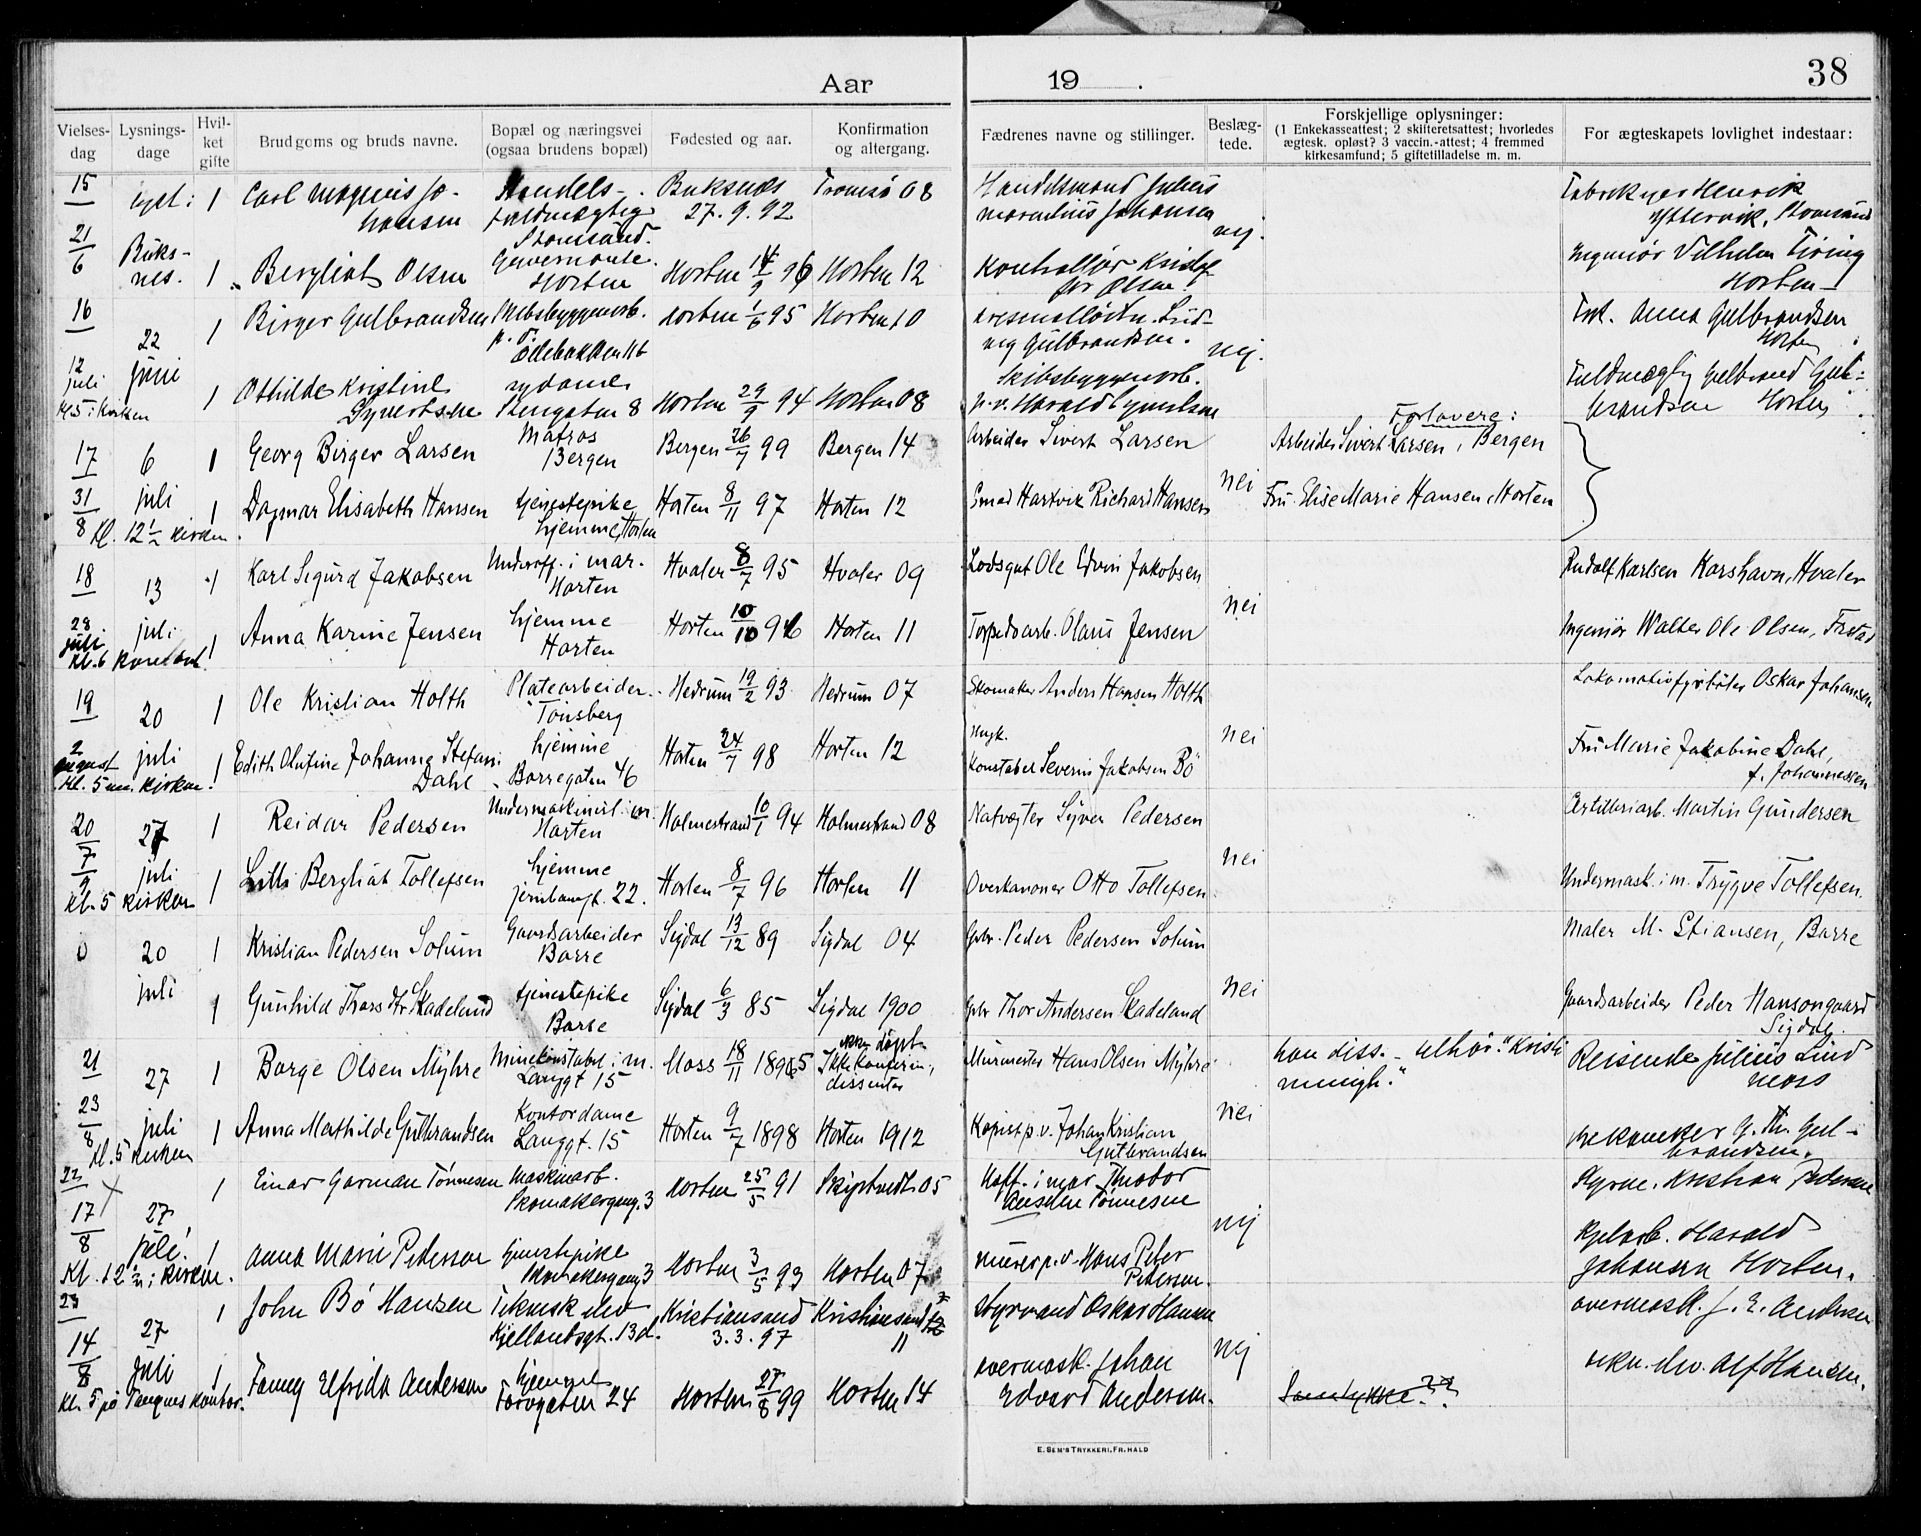 Aar 19 .
38
Vielses-dag
Lysnings-dage
Hvil-ket gifte
Brudgoms og bruds navne.
Bopæl og næringsvei (ogsaa brudens bopæl)
Fødested og aar.
Konfirmation og altergang.
Fædrenes navne og stillinger.
Beslæg-tede.
Forskjellige oplysninger:
(1 Enkekasseattest; 2 skifteretsattest; hvorledes ægtesk. opløst? 3 vaccin.-attest; 4 fremmed kirkesamfund; 5 giftetilladelse m. m.
For ægteskapets lovlighet indestaar:
15
lyst i 1 Carl Magnus Jo-hansen Handels-fuldmægtig Stamsund. Buksnes 27.9.92 Tromsø 08 Handelsmand Julius Johansen nej.
Henrik Yttervik, Stamsund
21/6 Buks-nes. 1 Bergliot Olsen Guvernante. Horten Horten 96 Horten 12 Kontrollør Olsen
Ingeniør Vilhelm Horten
16
22 juni 1 Birger Gulbrandsen Skibsbyggerarb. Horten 1/6 95 Horten 10 Gulbrandsen. nej.
Frk. Anna Gulbrandsen Horten
12 juli kl. 5 i kirken 1 Othilde Kristine Syvertsen sydame Stengaten 8 Horten 29/9 94 Horten 08 Skibsbyggerarb. p.v. Harald Syvertsen
Fuldmægtig Gulbrand Gul-brandsen Horten
Forlovere:
17 6 1 Georg Birger Larsen Matros Bergen Bergen 26/7 99 Bergen 14 Arbeider Sivert Larsen nei Arbeider Sivert Larsen, Bergen
31/8 kl. 12 1/2 kirken juli 1 Dagmar Elisabeth Hansen tjenestepike hjemme, Horten Horten 8/11 97 Horten 12 Smed Hartvik Richard Hansen Fru Elise Marie Hansen, Horten
18 13 1 Karl Sigurd Jakobsen Underoff. i mar. Horten Hvaler 8/7 95 Hvaler 09 Lodsgut Ole Edvin Jakobsen nei Rudolf Karlsen Korshavn, Hvaler
28 juli kl. 6 juli 1 Anna Karine Jensen hjemme Horten Horten 10/10 96 Horten 11 Torpedoarb. Olaus Jensen Ingeniør Walter Ole Olsen, Fr.stad
19 20 1 Ole Kristian Holth Platearbeider Tønsberg Hedrum 19/2 93 Hedrum 07 Skomaker Anders Hansen Holth nei Lokomotivfyrbøter Oskar Johansen
2 august kl. 5 em. kirken juli 1 Edith Olufine Johanna Stefani Dahl hjemme Borregaten 46 Horten 24/7 98 Horten 12 Konstabel Severin Jakobsen Bö Fru Marie Jakobine Dahl, f. Johannessen
20 27 1 Reidar Pedersen Undermaskinist i m. Horten Holmestrand 10/1 94 Holmestrand 08 Natvægter Syver Pedersen nei Artilleriarb. Martin Gundersen
7/9 kl. 5 kirken juli 1 Lilli Bergliot Tollefsen hjemme Jernbanegt. 22. Horten 8/7 96 Horten 11 Overkanoner Otto Tollefsen Undermask. i m. Trygve Tollefsen.
0 20 1 Kristian Pedersen Solum Gaardsarbeider Borre Sigdal 13/12 89 Sigdal 04 Gbr. Peder Pedersen Solum nei Maler M. Stiansen, Borre
juli 1 Gunhild Thorsdtr Skadeland tjenestepike Borre Sigdal 6/3 85 Sigdal 1900 Gbr Thor Andersen Skadeland Gaardsarbeider Peder Hansongaard Sigdal.
21 27 1 Borge Olsen Myhre Minekonstabel i m. Langgt 15 Moss 18/11 1895 ikke døpt Ikke konfirm., dissenter Murmester Hans Olsen Myhre nei han diss. - tilhør. "Kristi menigh." Reisende Julius Lund Moss
23/8 kl. 5 kirken juli 1 Anna Mathilde Gulbrandsen Kontordame Langgt. 15 Horten 9/7 1898 Horten 1912 Kopist p.v. Johan Kristian Gulbrandsen G. Th. Gul-brandsen.
22 1 Einar Garman Tønnesen Maskinarb. Skomakergang. 3 Horten 25/5 91 Skiptvedt 05 i mar. Theodor Tønnesen nej Kristian Pedersen
17/8 Kl. 12 1/2 i kirken. 27 juli. 1 Anna Marie Pederson tjenestepike Skomakergang 3 Horten 3/5 93 Horten 07 murer p.v. Hans Peter Pedersen. Kjelarb. Harald Johansen Horten.
23 27 1 John Bö Hansen Teknisk elev Kjellandsgt. 13d. Kristiansand 3.3.97 Kristiansand 11 Styrmand Oskar Hansen nej overmask. J. E. Andersen
14/8 kl. 5 på Tanques kontor. juli 1 Fanny Elfrida Andersen hjemme Torvgaten 24 Horten 27/8 99 Horten 14 overmask. Johan Edvard Andersen. Samtykke?? tekn. elev. Alf Hansen.
E. SEM'S TRYKKERI, FR.HALD